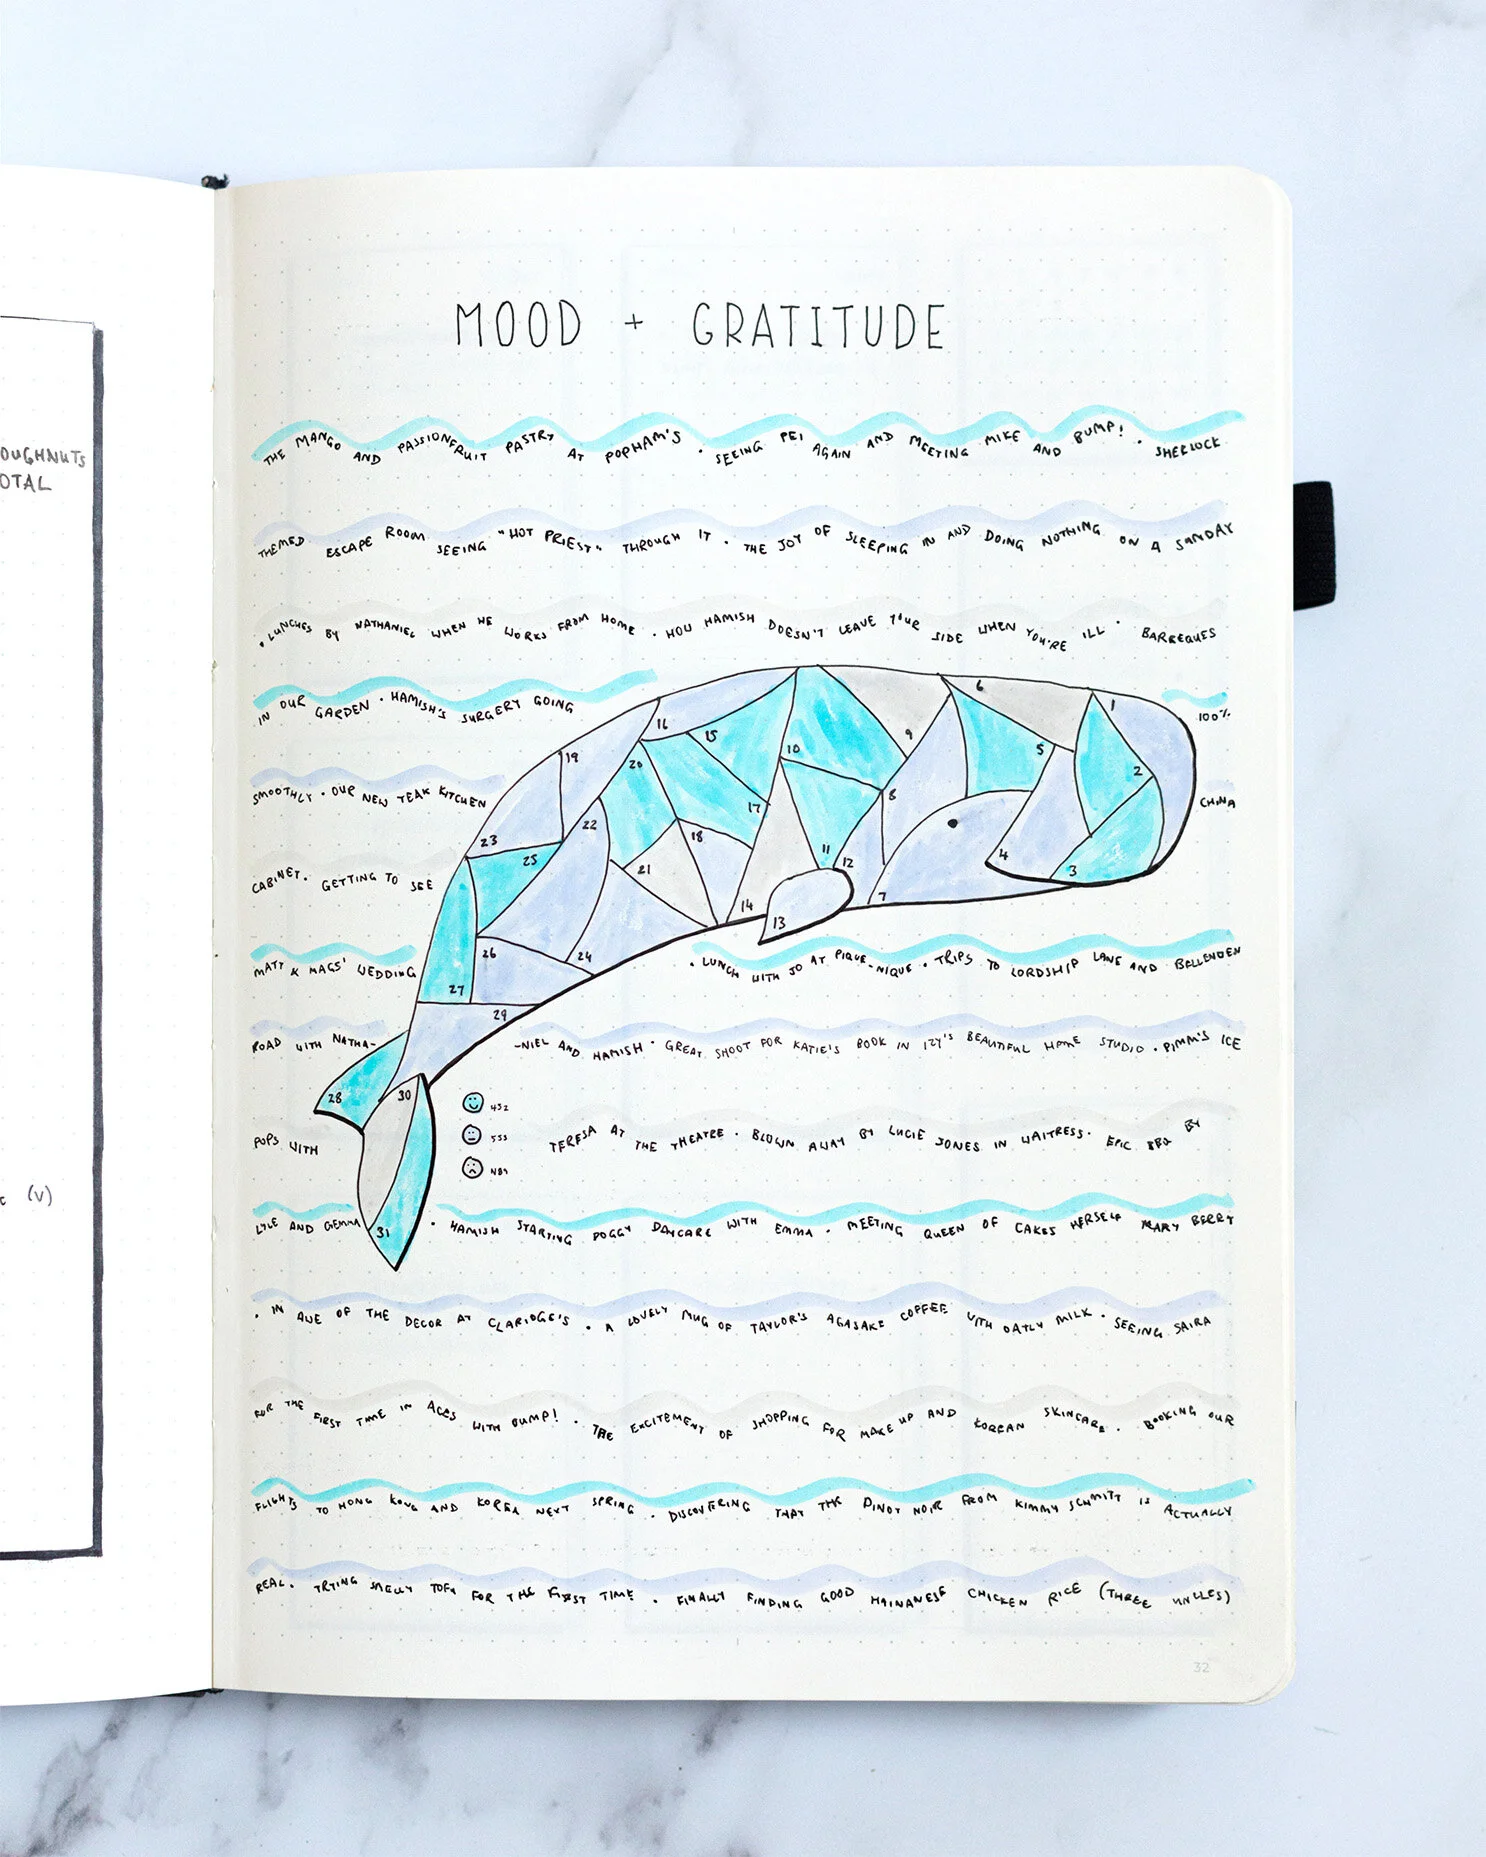 OUGHNUTS
OTAL
(V)
MOOD + GRATITUDE
THE MANGO AND PASSIONFRUIT PASTRY AT POPHAM'S · SEEING PEI AGAIN AND MEETING MIKE AND BUMP! · SHERLOCK
THEMED ESCAPE ROOM SEEING "HOT PRIEST" THROUGH IT · THE JOY OF SLEEPING IN AND DOING NOTHING ON A SUNDAY
· LUNCHES BY NATHANIEL WHEN HE WORKS FROM HOME · HOW HAMISH DOESN'T LEAVE YOUR SIDE WHEN YOU'RE ILL · BARBEQUES
IN OUR GARDEN · HAMISH'S SURGERY GOING 100%
SMOOTHLY · OUR NEW TEAK KITCHEN CHINA
CABINET. GETTING TO SEE
MATT & MAGS' WEDDING · LUNCH WITH JO AT PIQUE-NIQUE · TRIPS TO LORDSHIP LANE AND BELLENDEN
ROAD WITH NATHA- -NIEL AND HAMISH · GREAT SHOOT FOR KATIE'S BOOK IN IZY'S BEAUTIFUL HOME STUDIO · PIMM'S ICE
POPS WITH TERESA AT THE THEATRE · BLOWN AWAY BY LUCIE JONES IN WAITRESS · EPIC BBQ BY
LYLE AND GEMMA · HAMISH STARTING DOGGY DAYCARE WITH EMMA · MEETING QUEEN OF CAKES HERSELF MARY BERRY
· IN AWE OF THE DECOR AT CLARIDGE'S · A LOVELY MUG OF TAYLOR'S AGASAKE COFFEE WITH OATLY MILK · SEEING SAIRA
FOR THE FIRST TIME IN AGES WITH BUMP! · THE EXCITEMENT OF SHOPPING FOR MAKE UP AND KOREAN SKINCARE · BOOKING OUR
FLIGHTS TO HONG KONG AND KOREA NEXT SPRING · DISCOVERING THAT THE PINOT NOIR FROM KIMMY SCHMITT IS ACTUALLY
REAL. TRYING SMELLY TOFU FOR THE FIRST TIME · FINALLY FINDING GOOD HAINANESE CHICKEN RICE (THREE UNCLES)
1
2
3
4
5
6
7
8
9
10
11
12
13
14
15
16
17
18
19
20
21
22
23
24
25
26
27
28
29
30
31
452
553
N89
32